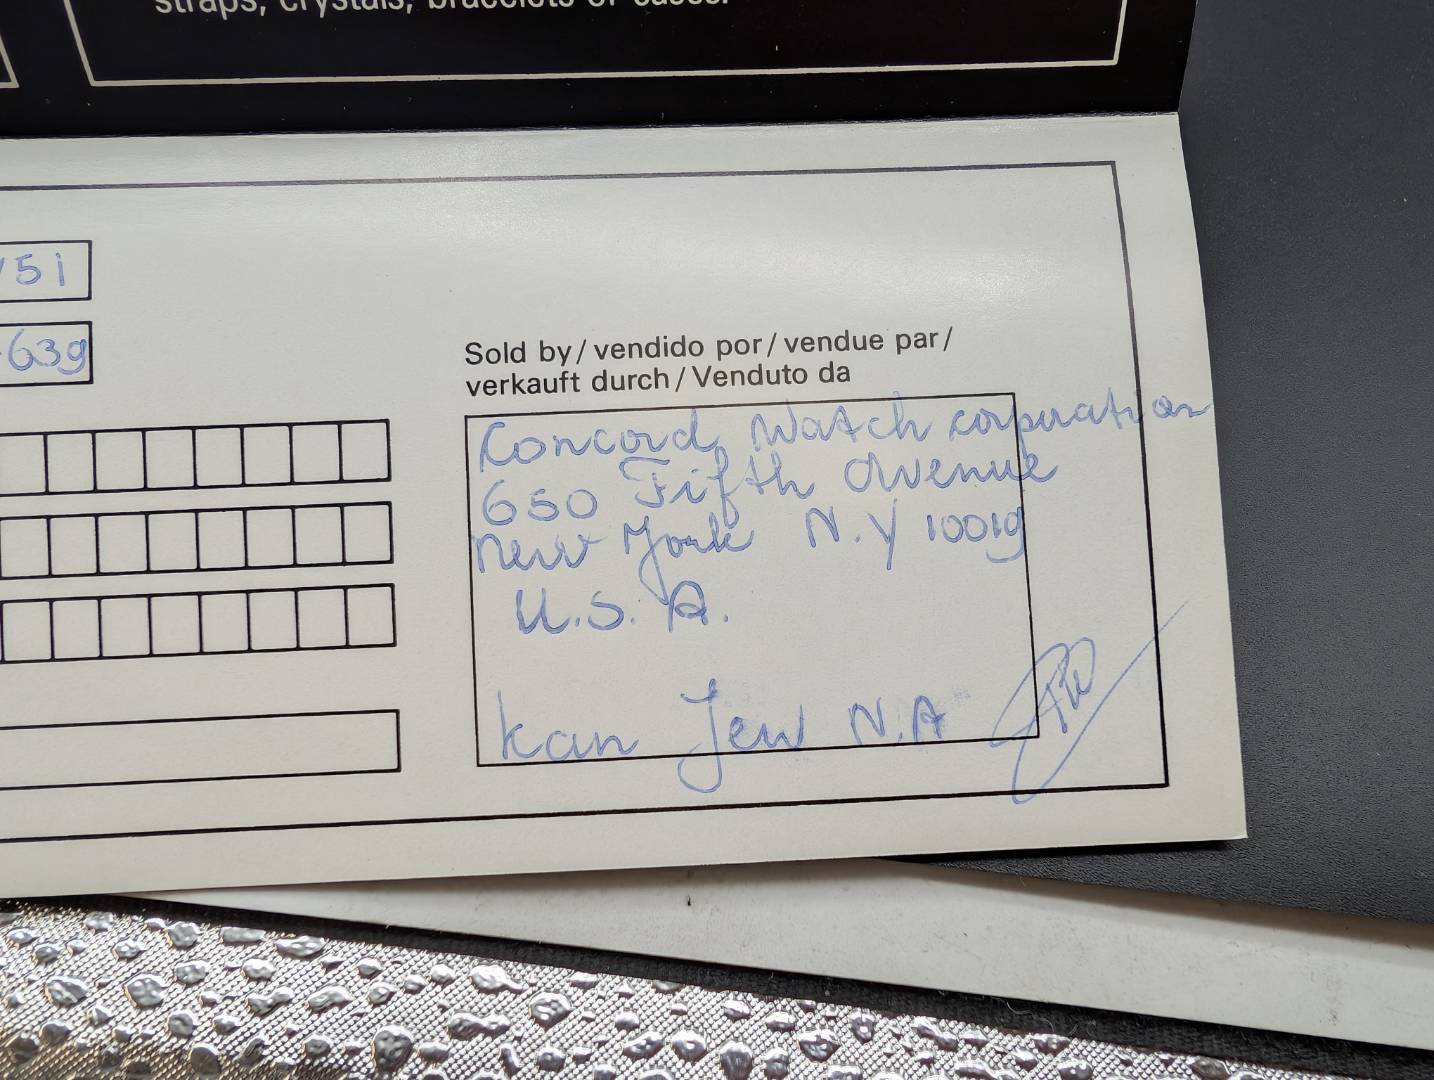 straps, crystals, bracelets or cases.
51
639
Sold by / vendido por / vendue par /
verkauft durch / Venduto da
Concord Watch corporation
650 Fifth Avenue
New York N.Y 10019
U.S.A.
kan Jew N.A